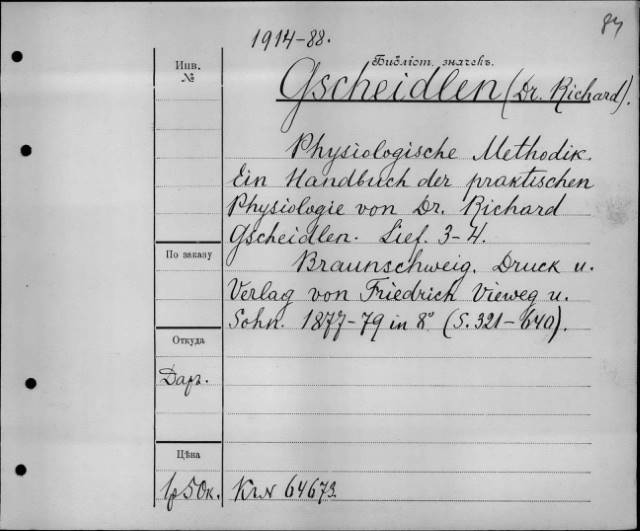 84
1914-88.
Инв.
№
Библіот. значекъ.
Gscheidlen (Dr. Richard).
Physiologische Methodik.
Ein Handbuch der praktischen
Physiologie von Dr. Richard
Gscheidlen. Lief. 3-4.
По заказу
Braunschweig, Druck u.
Verlag von Friedrich Vieweg u.
Sohn. 1877-79 in 8° (S. 321-640).
Откуда
Даръ.
Цѣна
1р50к.
64673